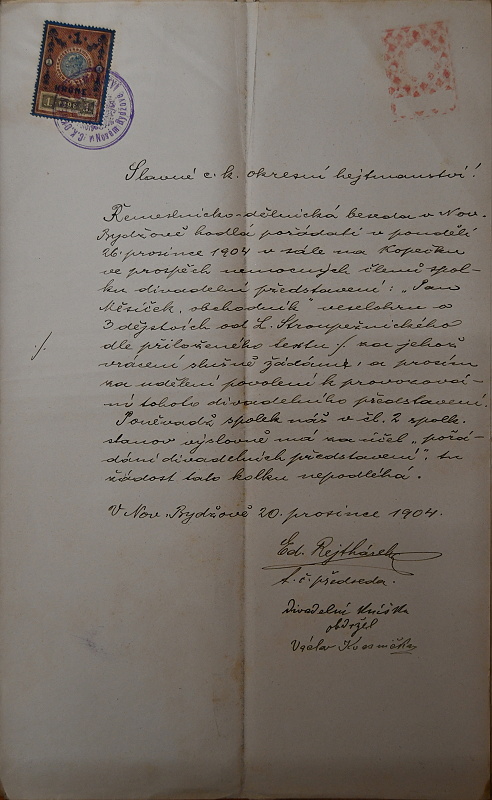 1
KRONE
Slavné c. k. okresní hejtmanství!
Řemeslnicko-dělnická beseda v Nov.
Bydžově hodlá pořádati v pondělí
26. prosince 1904 v sále na Kopečku
ve prospěch nemocných členů spol-
ku divadelní představení: „Pan
Měsíček, obchodník" veselohru o
3 dějstvích od L. Stroupežnického
./. dle přiloženého textu ./. za jehož
vrácení slušně žádáme, a prosím
za udělení povolení k provozová-
ní tohoto divadelního představení.
Poněvadž spolek náš v čl. 2 spolk.
stanov výslovně má za účel „pořá-
dání divadelních představení", tu
žádost tato kolku nepodléhá.
V Nov. Bydžově 20. prosince 1904.
Ed. Rejthárek
t. č. předseda.
Divadelní knížku
obdržel
Václav